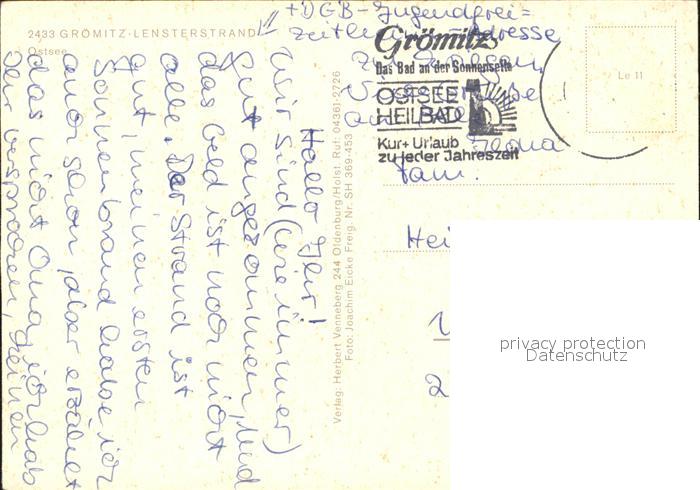 2433 GRÖMITZ-LENSTERSTRAND
Ostsee
Hallo Ihr!
Wir sind (wie immer)
gut angekommen, und
das Geld ist noch nicht
alle. Der Strand ist
gut, meinen ersten
Sonnenbrand habe ich
auch schon, aber erzählt
das nicht Oma, ich hab
Ihr versprochen,
+ DGB-Jugendfrei=
Adresse
Ilona
Grömitz
Das Bad an der Sonnenseite
OSTSEE
HEILBAD
Kur + Urlaub
zu jeder Jahreszeit
Le 11
Fam.
Hei
2
Verlag: Herbert Venneberg 244 Oldenburg/Holst. Ruf: 04361-2726
Foto: Joachim Eicke Freig. Nr. SH 369-453
privacy protection
Datenschutz